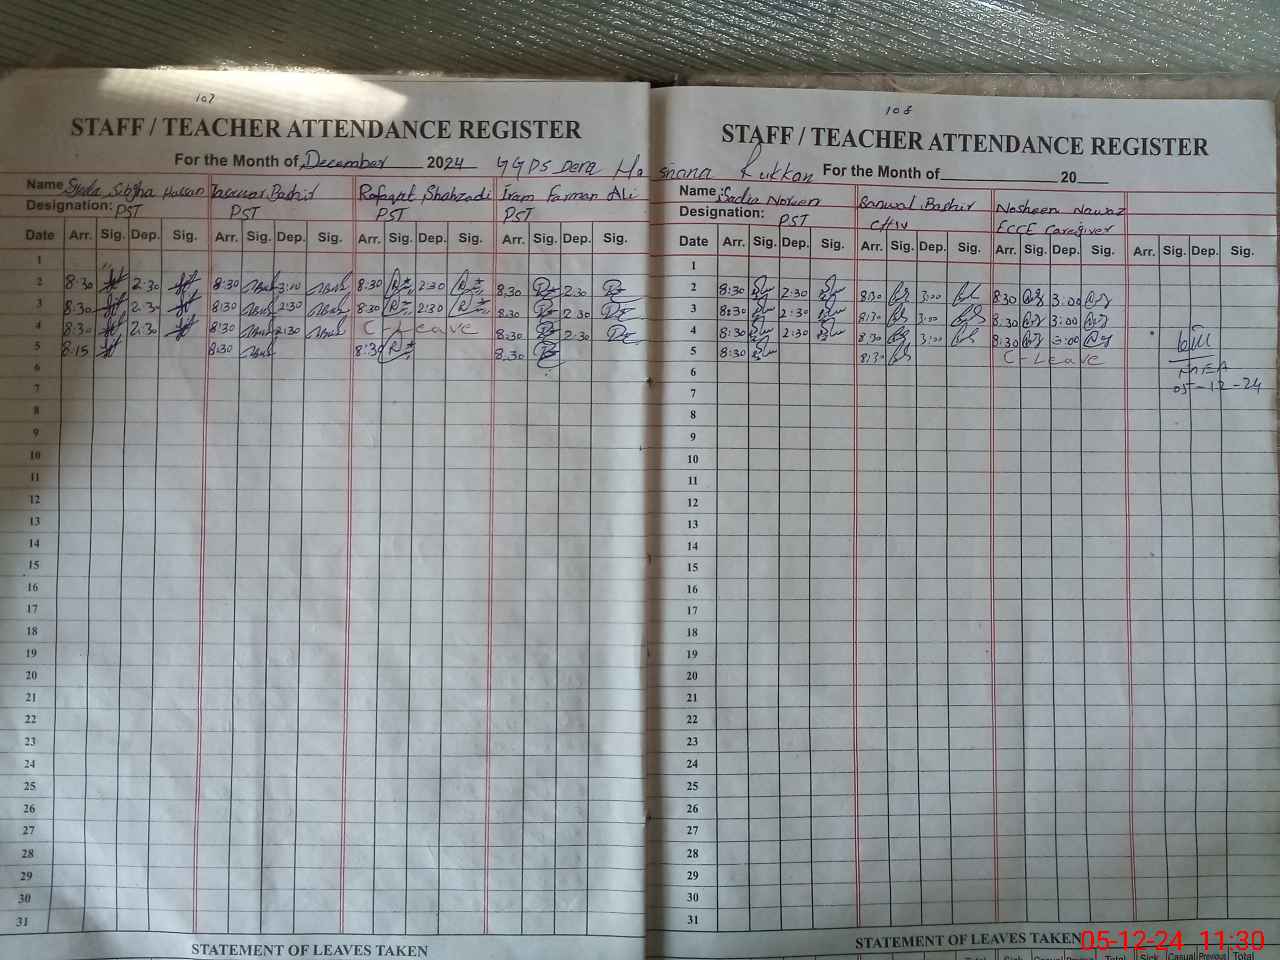 107
STAFF / TEACHER ATTENDANCE REGISTER
For the Month of December 2024 GGPS Dera Ha
Name Syeda Sibgha Hassan Tasawar Bashir Rafaqat Shahzadi Iram Farman Ali
Designation: PST PST PST PST
Date Arr. Sig. Dep. Sig. Arr. Sig. Dep. Sig. Arr. Sig. Dep. Sig. Arr. Sig. Dep. Sig.
1
2 8:30 2:30 8:30 3:00 8:30 2:30 8:30 2:30
3 8:30 2:30 8:30 2:30 8:30 2:30 8:30 2:30
4 8:30 2:30 8:30 2:30 C-Leave 8:30 2:30
5 8:15 8:30 8:30 8:30
6
7
8
9
10
11
12
13
14
15
16
17
18
19
20
21
22
23
24
25
26
27
28
29
30
31
STATEMENT OF LEAVES TAKEN
108
STAFF / TEACHER ATTENDANCE REGISTER
snana Rukkan For the Month of 20
Name : Sadia Noreen Banwal Bashir Nosheen Nawaz
Designation: PST ECCE Caregiver
Date Arr. Sig. Dep. Sig. Arr. Sig. Dep. Sig. Arr. Sig. Dep. Sig. Arr. Sig. Dep. Sig.
1
2 8:30 2:30 8:30 3:00 8:30 3:00
3 8:30 2:30 8:30 3:00 8:30 3:00
4 8:30 2:30 8:30 3:00 8:30 3:00
5 8:30 8:30 C-Leave
6 MEA
7 05-12-24
8
9
10
11
12
13
14
15
16
17
18
19
20
21
22
23
24
25
26
27
28
29
30
31
STATEMENT OF LEAVES TAKEN
05-12-24 11:30